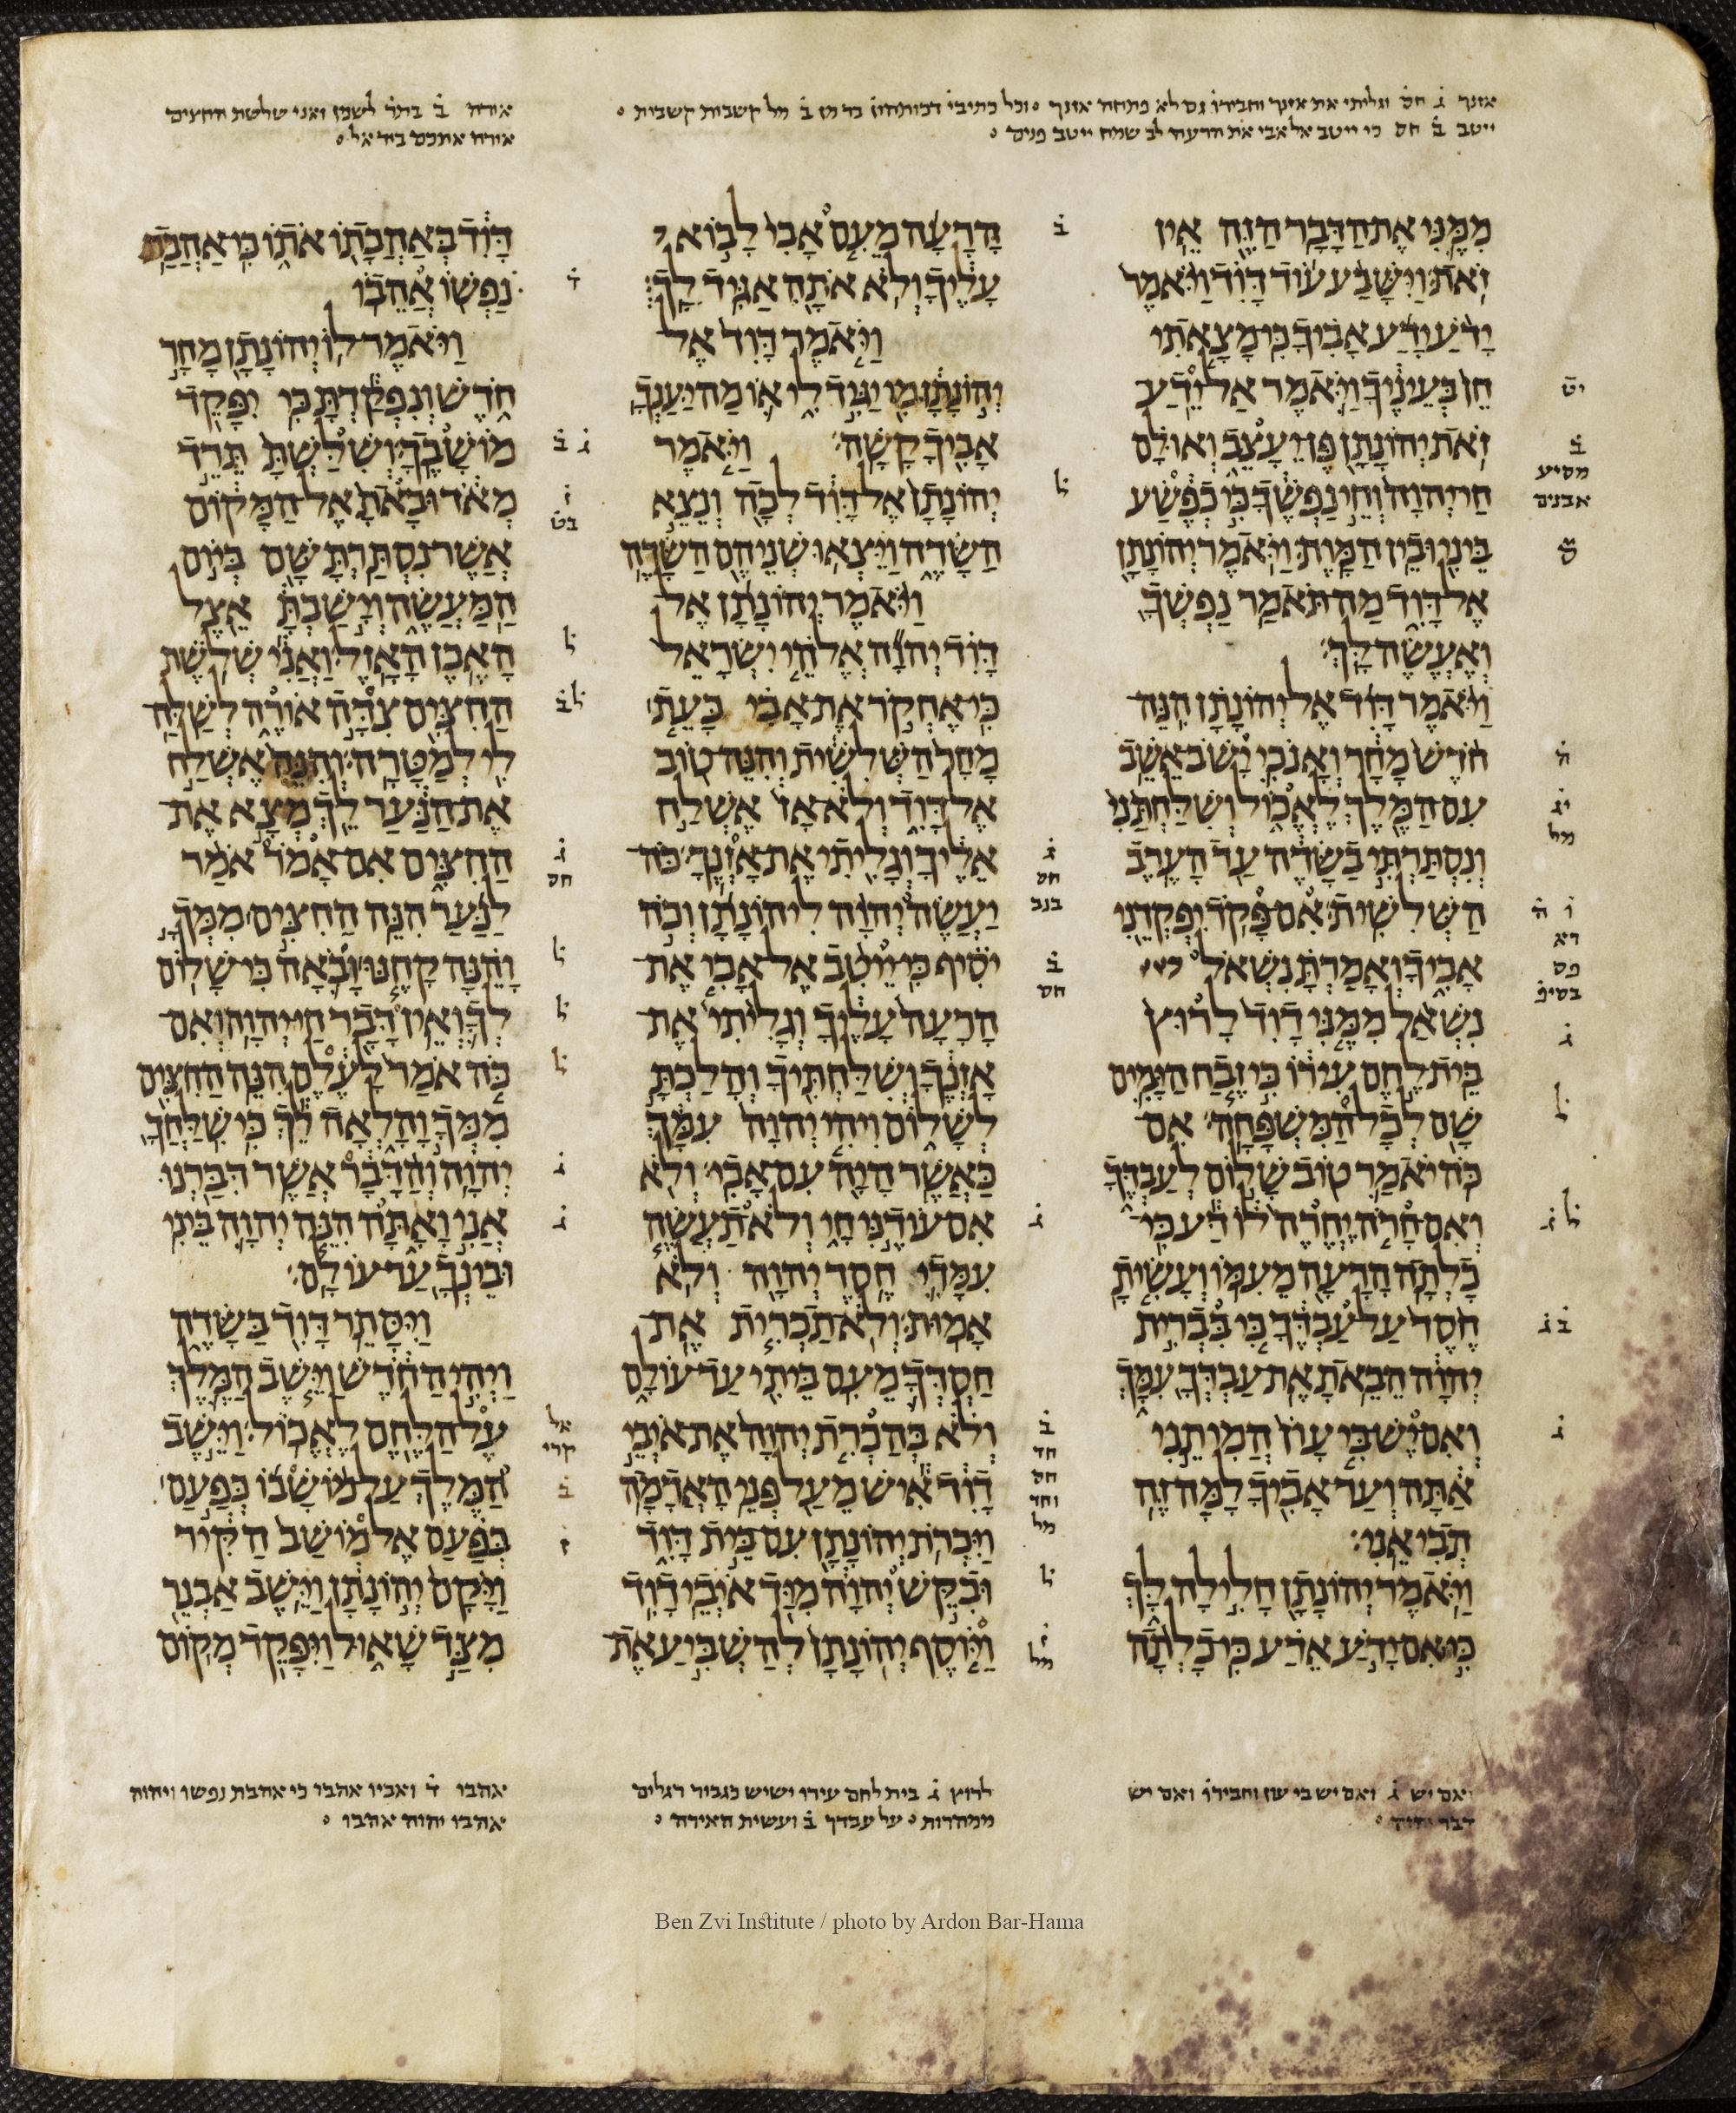 אזנך ג חס וגליתי את אזנך וחבירו גם לא פתחה אזנך וכל כתיבי דכותהון בר מן ב מל קשבות קשבית
ייטב ב חס כי ייטב אל אבי את הרעה לב שמח ייטב פנים
אורה ב ואני שלשת החצים
אורה אתכם ביד אל
מִמֶּנִּי אֶת הַדָּבָר הַזֶּה אֵין
זֹאת׃ וַיִּשָּׁבַע עוֹד דָּוִד וַיֹּאמֶר
יָדֹעַ יָדַע אָבִיךָ כִּי מָצָאתִי
חֵן בְּעֵינֶיךָ וַיֹּאמֶר אַל יֵדַע
זֹאת יְהוֹנָתָן פֶּן יֵעָצֵב וְאוּלָם
חַי יְהוָה וְחֵי נַפְשֶׁךָ כִּי כְפֶשַׂע
בֵּינִי וּבֵין הַמָּוֶת׃ וַיֹּאמֶר יְהוֹנָתָן
אֶל דָּוִד מַה תֹּאמַר נַפְשְׁךָ
וְאֶעֱשֶׂה לָּךְ׃
וַיֹּאמֶר דָּוִד אֶל יְהוֹנָתָן הִנֵּה
חֹדֶשׁ מָחָר וְאָנֹכִי יָשֹׁב אֵשֵׁב
עִם הַמֶּלֶךְ לֶאֱכוֹל וְשִׁלַּחְתַּנִי
וְנִסְתַּרְתִּי בַשָּׂדֶה עַד הָעֶרֶב
הַשְּׁלִשִׁית׃ אִם פָּקֹד יִפְקְדֵנִי
אָבִיךָ וְאָמַרְתָּ נִשְׁאֹל
נִשְׁאַל מִמֶּנִּי דָוִד לָרוּץ
בֵּית לֶחֶם עִירוֹ כִּי זֶבַח הַיָּמִים
שָׁם לְכָל הַמִּשְׁפָּחָה׃ אִם
כֹּה יֹאמַר טוֹב שָׁלוֹם לְעַבְדֶּךָ
וְאִם חָרֹה יֶחֱרֶה לוֹ דַּע כִּי
כָלְתָה הָרָעָה מֵעִמּוֹ׃ וְעָשִׂיתָ
חֶסֶד עַל עַבְדֶּךָ כִּי בִּבְרִית
יְהוָה הֵבֵאתָ אֶת עַבְדְּךָ עִמָּךְ
וְאִם יֶשׁ בִּי עָוֺן הֲמִיתֵנִי
אַתָּה וְעַד אָבִיךָ לָמָּה זֶּה
תְבִיאֵנִי׃
וַיֹּאמֶר יְהוֹנָתָן חָלִילָה לָּךְ
כִּי אִם יָדֹעַ אֵדַע כִּי כָלְתָה
הָרָעָה מֵעִם אָבִי לָבוֹא
עָלֶיךָ וְלֹא אֹתָהּ אַגִּיד לָךְ׃
וַיֹּאמֶר דָּוִד אֶל
יְהוֹנָתָן מִי יַגִּיד לִי אוֹ מַה יַּעַנְךָ
אָבִיךָ קָשָׁה׃ וַיֹּאמֶר
יְהוֹנָתָן אֶל דָּוִד לְכָה וְנֵצֵא
הַשָּׂדֶה וַיֵּצְאוּ שְׁנֵיהֶם הַשָּׂדֶה׃
וַיֹּאמֶר יְהוֹנָתָן אֶל
דָּוִד יְהוָה אֱלֹהֵי יִשְׂרָאֵל
כִּי אֶחְקֹר אֶת אָבִי כָּעֵת
מָחָר הַשְּׁלִשִׁית וְהִנֵּה טוֹב
אֶל דָּוִד וְלֹא אָז אֶשְׁלַח
אֵלֶיךָ וְגָלִיתִי אֶת אָזְנֶךָ׃ כֹּה
יַעֲשֶׂה יְהוָה לִיהוֹנָתָן וְכֹה
יֹסִיף כִּי יֵיטִב אֶל אָבִי אֶת
הָרָעָה עָלֶיךָ וְגָלִיתִי אֶת
אָזְנֶךָ וְשִׁלַּחְתִּיךָ וְהָלַכְתָּ
לְשָׁלוֹם וִיהִי יְהוָה עִמָּךְ
כַּאֲשֶׁר הָיָה עִם אָבִי׃ וְלֹא
אִם עוֹדֶנִּי חָי וְלֹא תַעֲשֶׂה
עִמָּדִי חֶסֶד יְהוָה וְלֹא
אָמוּת׃ וְלֹא תַכְרִית אֶת
חַסְדְּךָ מֵעִם בֵּיתִי עַד עוֹלָם
וְלֹא בְּהַכְרִת יְהוָה אֶת אֹיְבֵי
דָוִד אִישׁ מֵעַל פְּנֵי הָאֲדָמָה׃
וַיִּכְרֹת יְהוֹנָתָן עִם בֵּית דָּוִד
וּבִקֵּשׁ יְהוָה מִיַּד אֹיְבֵי דָוִד׃
וַיּוֹסֶף יְהוֹנָתָן לְהַשְׁבִּיעַ אֶת
דָּוִד בְּאַהֲבָתוֹ אֹתוֹ כִּי אַהֲבַת
נַפְשׁוֹ אֲהֵבוֹ׃
וַיֹּאמֶר לוֹ יְהוֹנָתָן מָחָר
חֹדֶשׁ וְנִפְקַדְתָּ כִּי יִפָּקֵד
מוֹשָׁבֶךָ׃ וְשִׁלַּשְׁתָּ תֵּרֵד
מְאֹד וּבָאתָ אֶל הַמָּקוֹם
אֲשֶׁר נִסְתַּרְתָּ שָּׁם בְּיוֹם
הַמַּעֲשֶׂה וְיָשַׁבְתָּ אֵצֶל
הָאֶבֶן הָאָזֶל׃ וַאֲנִי שְׁלֹשֶׁת
הַחִצִּים צִדָּה אוֹרֶה לְשַׁלַּח
לִי לְמַטָּרָה׃ וְהִנֵּה אֶשְׁלַח
אֶת הַנַּעַר לֵךְ מְצָא אֶת
הַחִצִּים אִם אָמֹר אֹמַר
לַנַּעַר הִנֵּה הַחִצִּים מִמְּךָ
וָהֵנָּה קָחֶנּוּ וָבֹאָה כִּי שָׁלוֹם
לְךָ וְאֵין דָּבָר חַי יְהוָה׃ וְאִם
כֹּה אֹמַר לָעֶלֶם הִנֵּה הַחִצִּים
מִמְּךָ וָהָלְאָה לֵךְ כִּי שִׁלַּחֲךָ
יְהוָה׃ וְהַדָּבָר אֲשֶׁר דִּבַּרְנוּ
אֲנִי וָאָתָּה הִנֵּה יְהוָה בֵּינִי
וּבֵינְךָ עַד עוֹלָם׃
וַיִּסָּתֵר דָּוִד בַּשָּׂדֶה
וַיְהִי הַחֹדֶשׁ וַיֵּשֶׁב הַמֶּלֶךְ
עַל הַלֶּחֶם לֶאֱכוֹל׃ וַיֵּשֶׁב
הַמֶּלֶךְ עַל מוֹשָׁבוֹ כְּפַעַם
בְּפַעַם אֶל מוֹשַׁב הַקִּיר
וַיָּקָם יְהוֹנָתָן וַיֵּשֶׁב אַבְנֵר
מִצַּד שָׁאוּל וַיִּפָּקֵד מְקוֹם
ואם יש ג ואם יש בי עון וחבירו ואם יש
דבר יהוה
לרוץ ג בית לחם עירו ישיש כגבור רגלים
ממהרות על עבדך ב ועשית האירה
אהבו ד ואביו אהבו כי אהבת נפשו ויהוה
אהבו יהוה אהבו
Ben Zvi Institute / photo by Ardon Bar-Hama